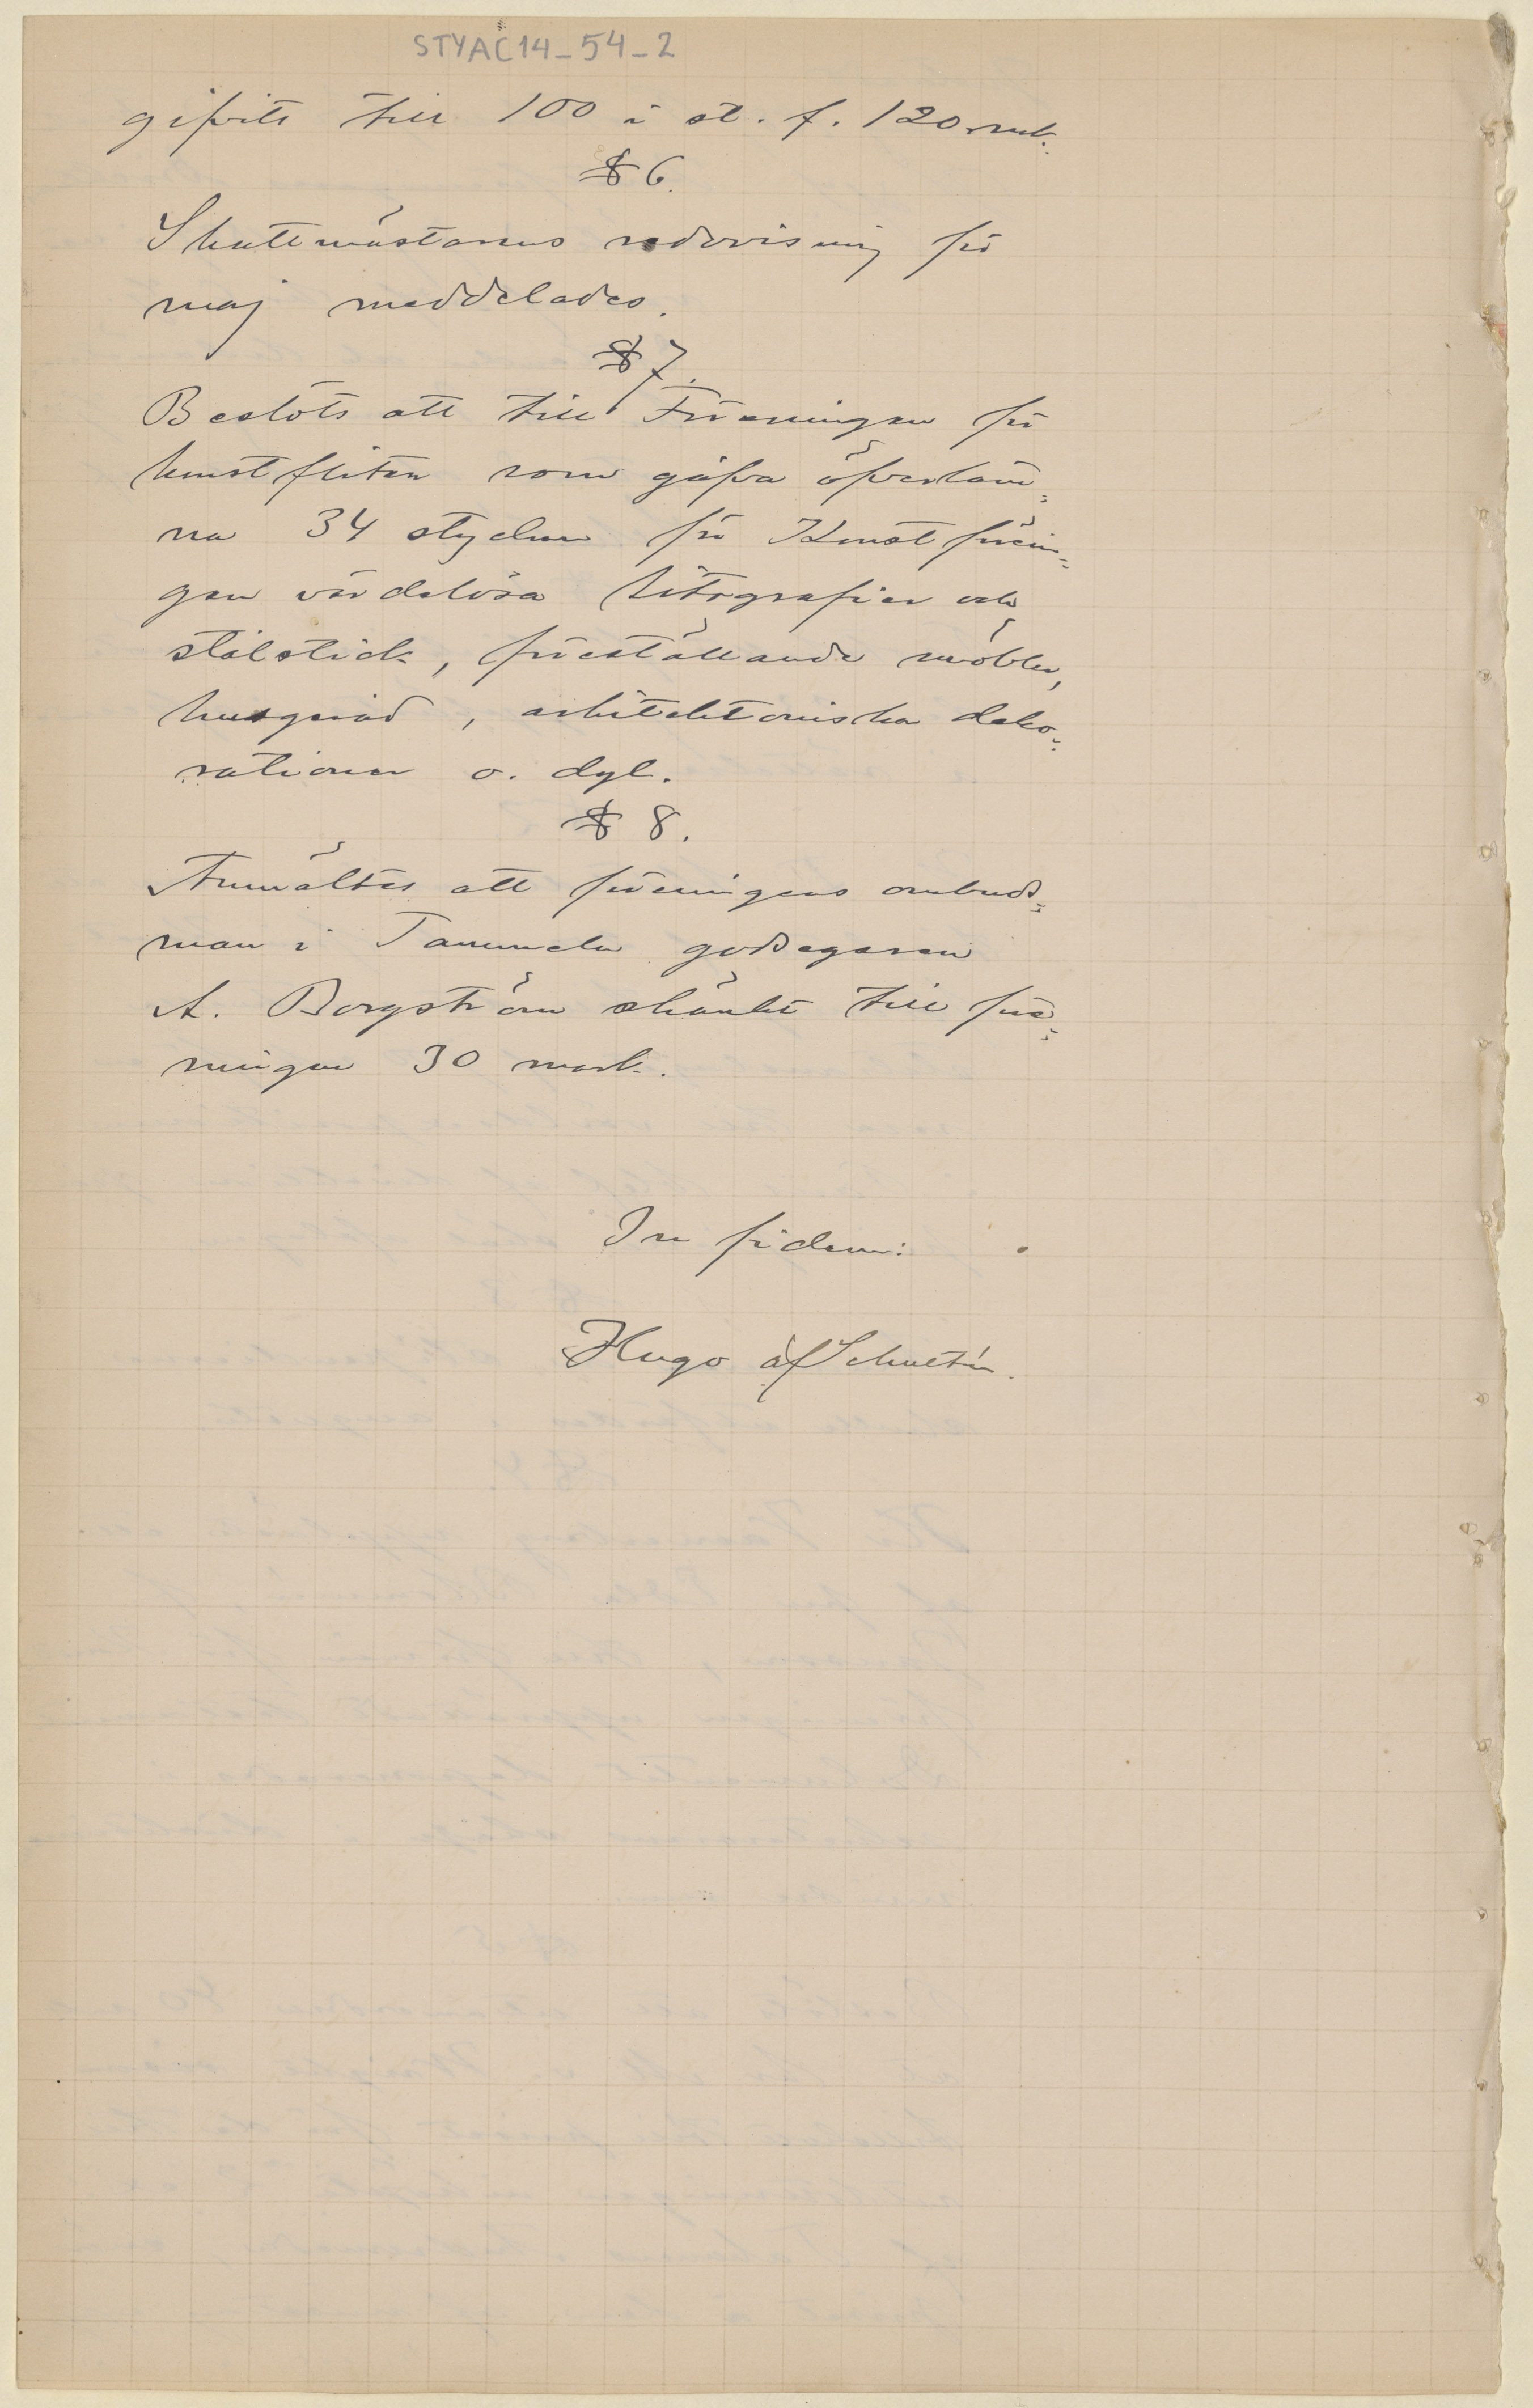 STYAC14_54_2
gifvits till 100 i st. f. 120 mk.
§ 6.
Skattmästarens redovisning för
maj meddelades.
§ 7.
Beslöts att till Föreningen för
konstfliten som gåfva öfverläm-
na 34 stycken för Konstförenin-
gen värdelösa litografier och
stålstick, föreställande möbler,
husgeråd, arkitektoniska deko-
rationer o. dyl.
§ 8.
Anmältes att föreningens ombuds-
man i Tammela godsegaren
A. Borgström skänkt till före-
ningen 30 mark.
In fidem:
Hugo af Schultén.